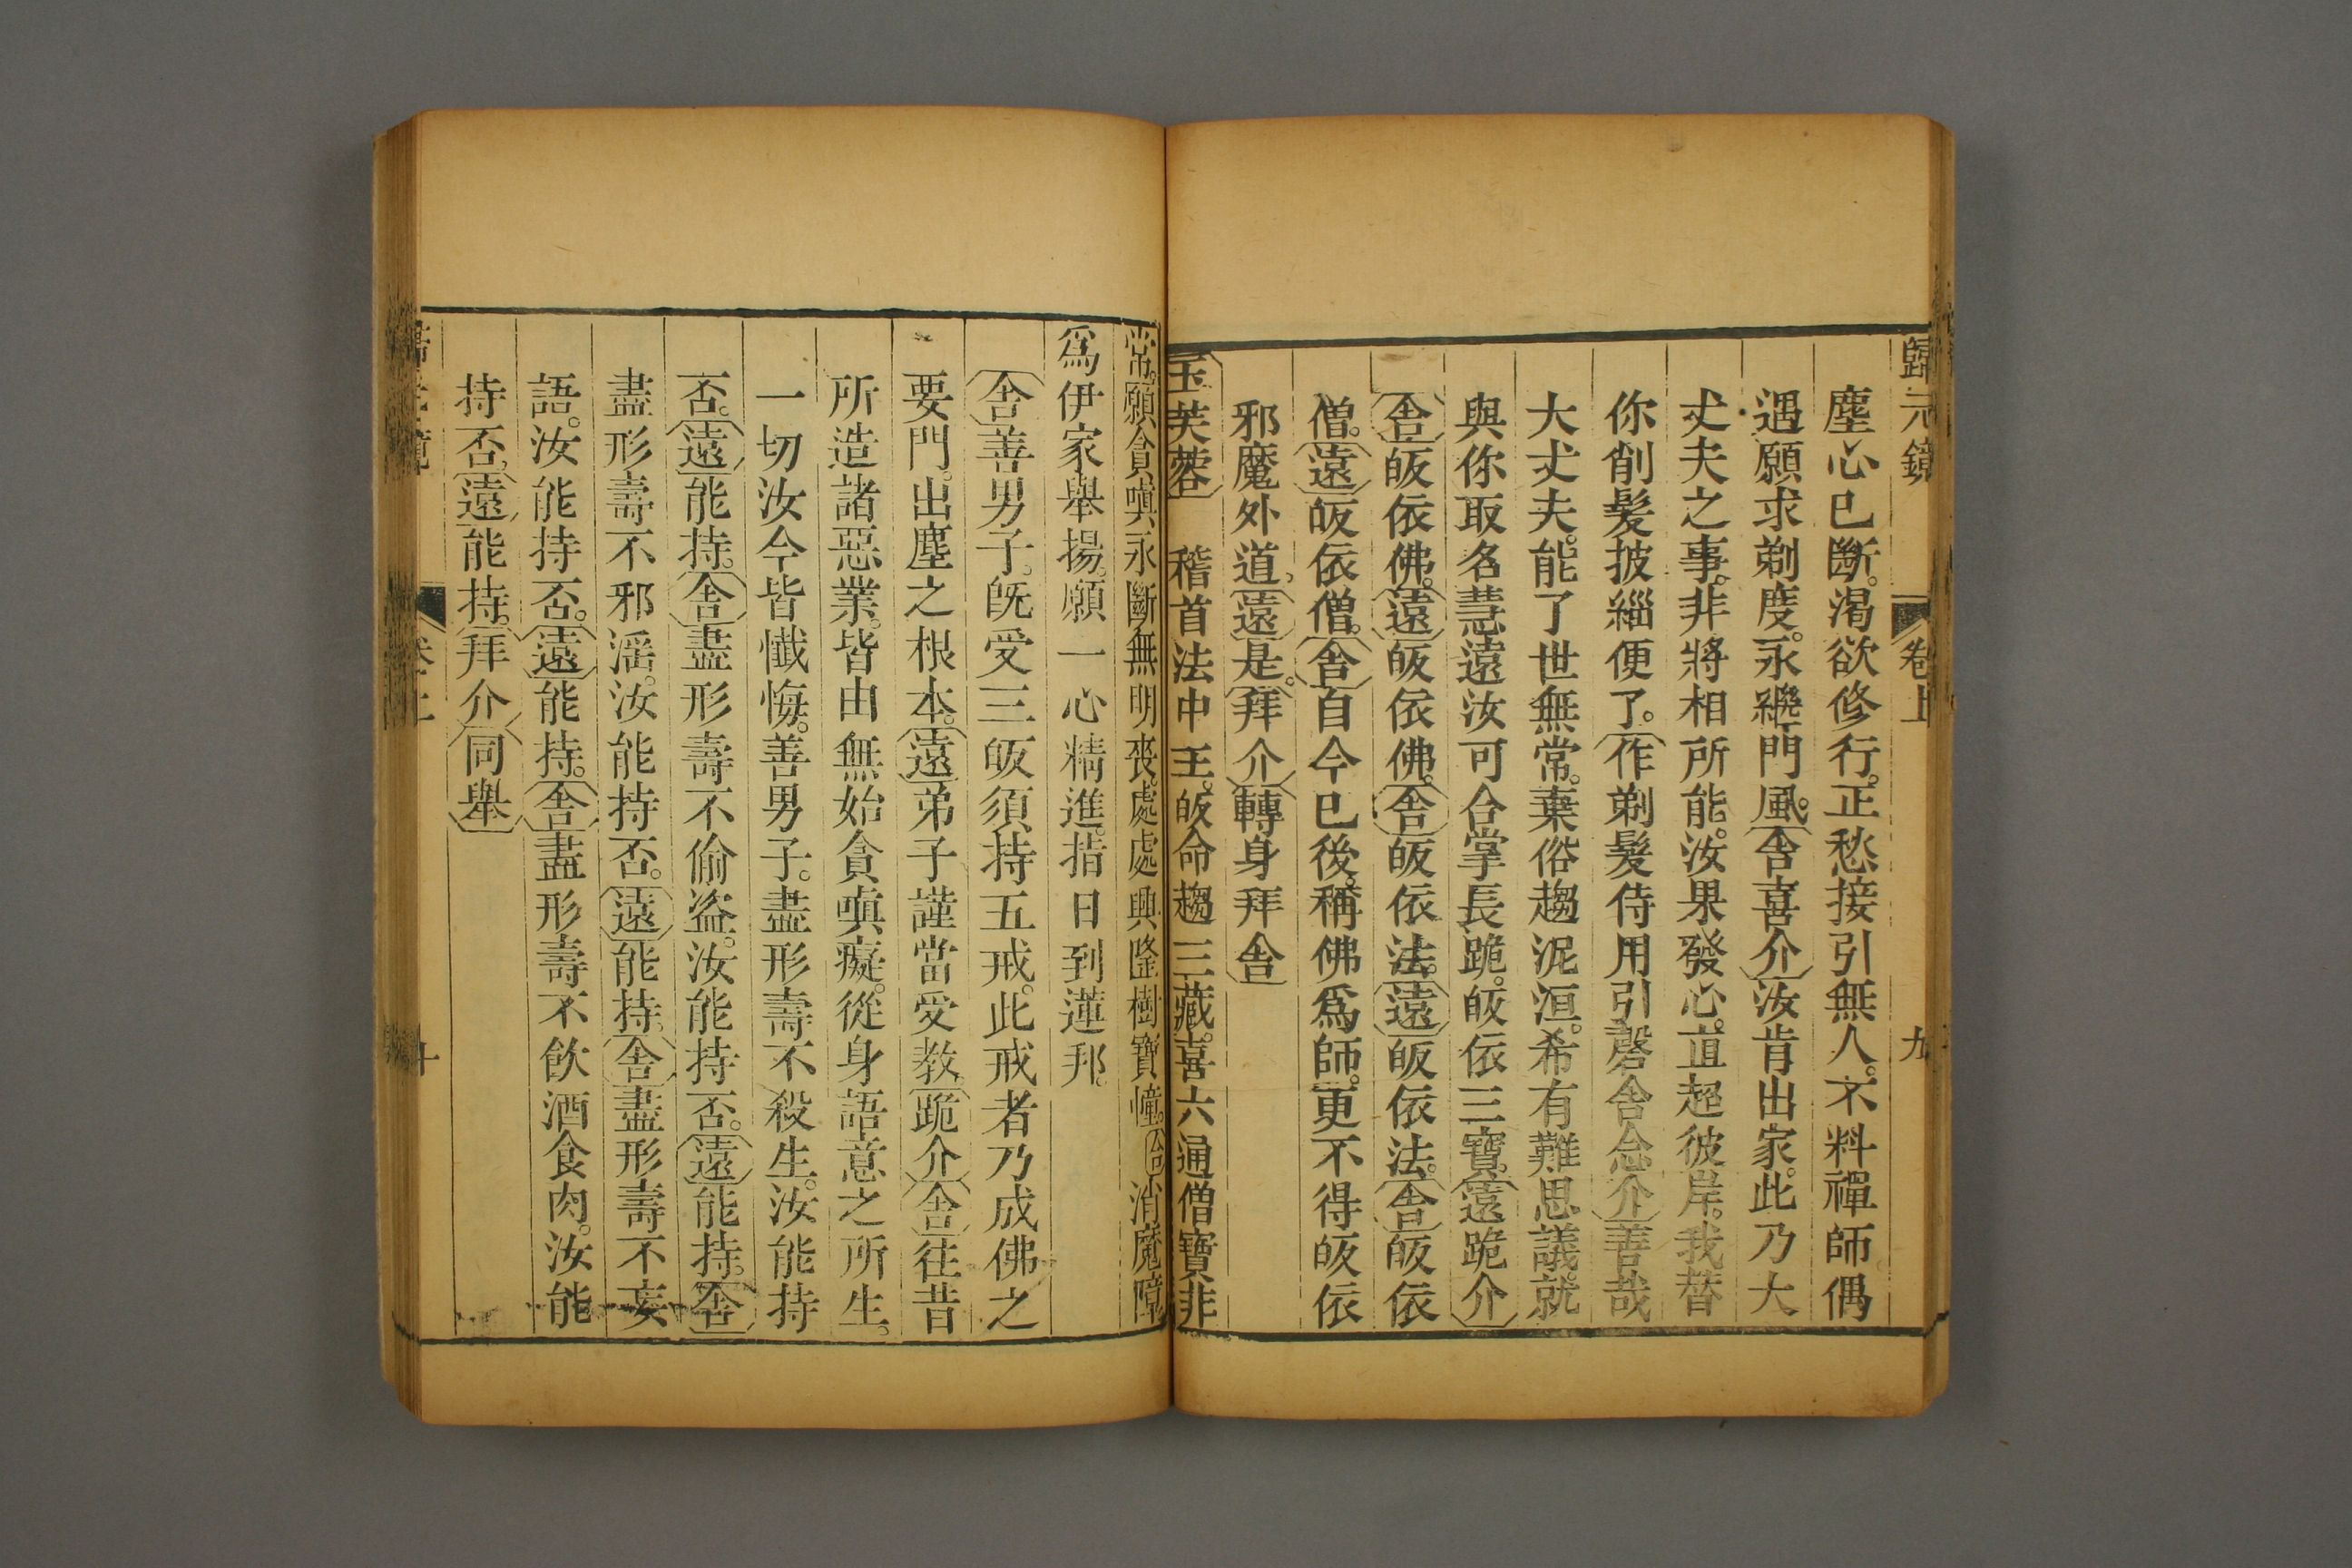 歸元鏡 卷上 九
塵心已斷。渴欲修行。正愁接引無人。不料禪師偶
遇願求剃度。永繼門風。舎喜介汝肯出家。此乃大
丈夫之事。非將相所能。汝果發心。直超彼岸。我替
你削髮披緇便了。作剃髮侍用引磬舎念介善哉
大丈夫。能了世無常。棄俗趨泥洹。希有難思議。就
與你取名慧遠汝可合掌長跪。皈依三寶。遠跪介
舎皈依佛。遠皈依佛。舎皈依法。遠皈依法。舎皈依
僧。遠皈依僧。舎自今已後。稱佛爲師。更不得皈依
邪魔外道。遠是。拜介轉身拜舎
玉芙蓉 稽首法中主。皈命趨三藏。喜六通僧寶非
常。願貪嗔永斷無明喪。處處興隆樹寶幢。合消魔障
爲伊家舉揚。願一心精進。指日到蓮邦。
舎善男子。既受三皈須持五戒。此戒者乃成佛之
要門。出塵之根本。遠弟子謹當受教。跪介舎往昔
所造諸惡業。皆由無始貪嗔癡。從身語意之所生。
一切汝今皆懺悔。善男子。盡形壽不殺生。汝能持
否。遠能持。舎盡形壽不偷盜。汝能持否。遠能持。舎
盡形壽不邪滛。汝能持否。遠能持。舎盡形壽不妄
語。汝能持否。遠能持。舎盡形壽不飲酒食肉。汝能
持否。遠能持。拜介同舉
卷上 十